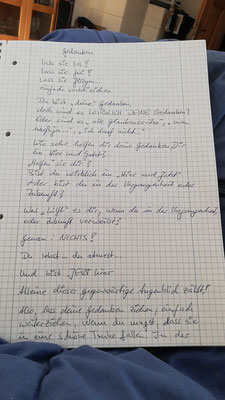 Gedanken
Lass sie los!
Lass sie frei!
Lass sie fliegen...
einfach vorbei ziehen
Du bist "deine" Gedanken,
doch sind es WIRKLICH DEINE Gedanken?
Oder sind es "alte Glaubenssätze", "man
muss ja...", "ich darf nicht..."
Wie sehr helfen dir deine Gedanken Dir
im Hier und Jetzt?
"Helfen" sie dir?
Bist du wirklich im "Hier und Jetzt"
oder bist du in der Vergangenheit oder
Zukunft?
Was "hilft" es dir, wenn du in der Vergangenheit
oder Zukunft verweilst?
Genau: NICHTS!
Du lebst... du atmest...
Und bist JETZT hier
Alleine dieser gegenwärtige Augenblick zählt!
Also, lass deine Gedanken ziehen, einfach
weiterziehen, wenn du magst, dass sie
in eine schöne Truhe fallen. In der